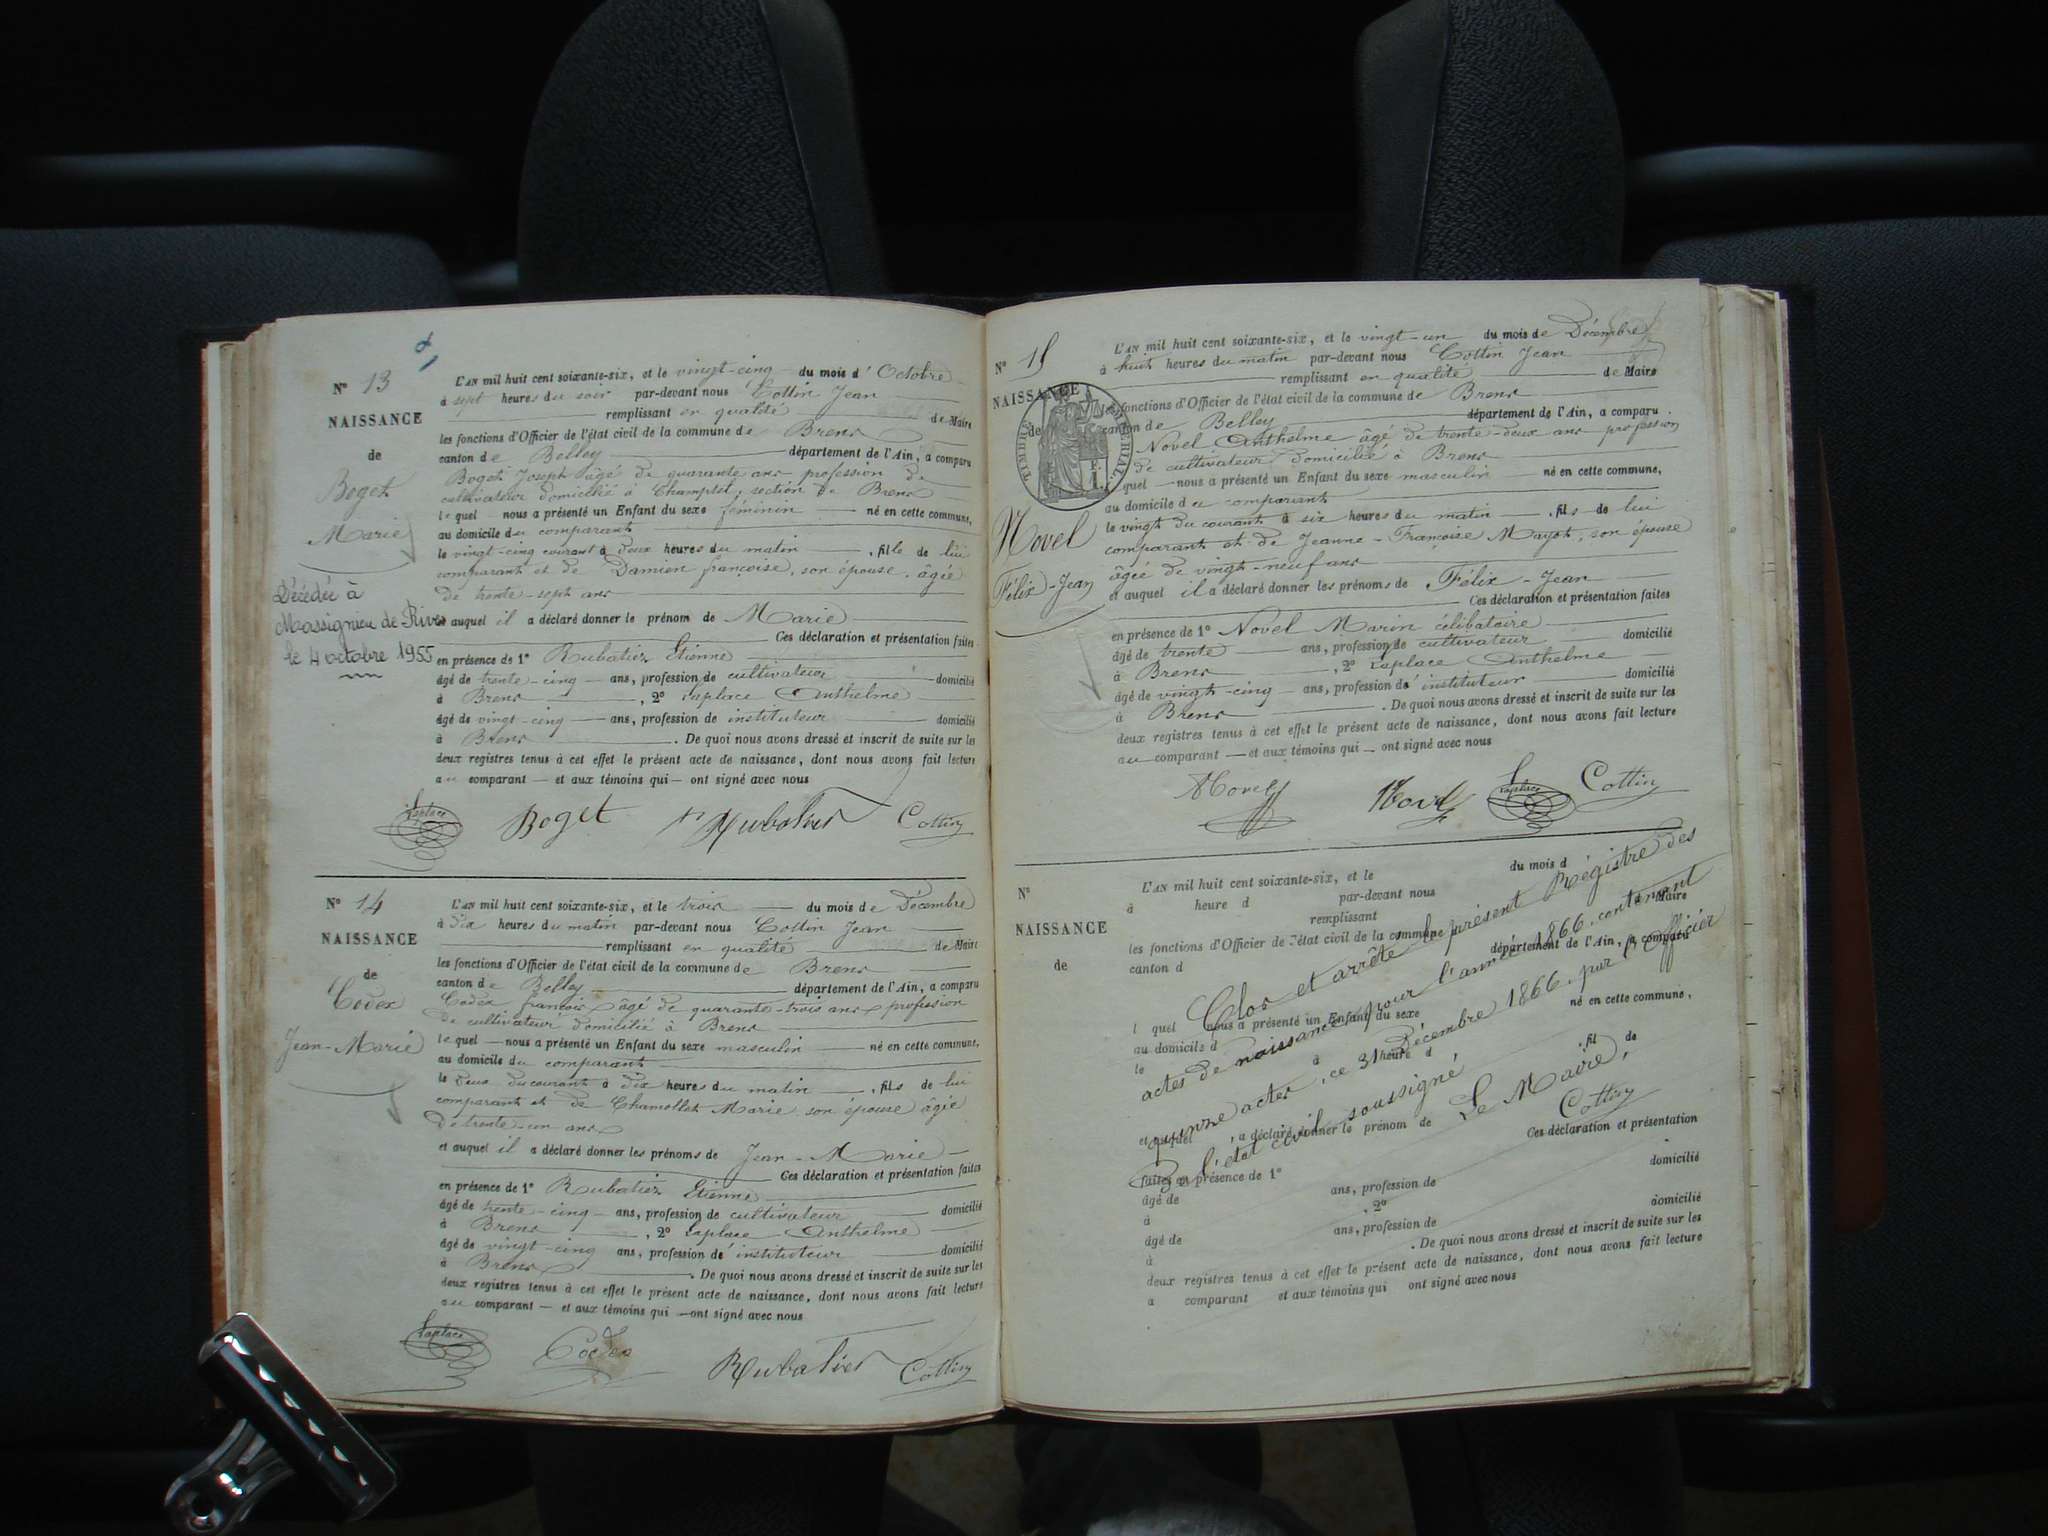 N° 13
NAISSANCE
de
Boget
Marie
Décédée à
Massignieu de Rives
le 4 octobre 1955
L'AN mil huit cent soixante-six, et le vingt-cinq du mois d'Octobre
à sept heures du soir par-devant nous Cottin Jean
remplissant en qualité de Maire
les fonctions d'Officier de l'état civil de la commune de Brens
canton de Belley département de l'Ain, a comparu
Boget Joseph âgé de quarante ans profession de
cultivateur domicilié à Champtel, section de Brens
lequel nous a présenté un Enfant du sexe féminin né en cette commune,
au domicile du comparant
le vingt-cinq courant à deux heures du matin, fille de lui
comparant et de Damien françoise, son épouse, âgée
de trente-sept ans
auquel il a déclaré donner le prénom de Marie
Ces déclaration et présentation faites
en présence de 1° Rubatier Etienne
âgé de trente-cinq ans, profession de cultivateur domicilié
à Brens, 2° Laplace Anthelme
âgé de vingt-cinq ans, profession de instituteur domicilié
à Brens. De quoi nous avons dressé et inscrit de suite sur les
deux registres tenus à cet effet le présent acte de naissance, dont nous avons fait lecture
au comparant et aux témoins qui ont signé avec nous
Laplace Boget Rubatier Cottin
N° 14
NAISSANCE
de
Codex
Jean-Marie
L'AN mil huit cent soixante-six, et le trois du mois de Décembre
à dix heures du matin par-devant nous Cottin Jean
remplissant en qualité de Maire
les fonctions d'Officier de l'état civil de la commune de Brens
canton de Belley département de l'Ain, a comparu
Codex françois âgé de quarante-trois ans profession
de cultivateur domicilié à Brens
lequel nous a présenté un Enfant du sexe masculin né en cette commune,
au domicile du comparant
le deux du courant à dix heures du matin, fils de lui
comparant et de Chamollet Marie son épouse âgée
de trente-un ans
et auquel il a déclaré donner les prénoms de Jean-Marie
Ces déclaration et présentation faites
en présence de 1° Rubatier Etienne
âgé de trente-cinq ans, profession de cultivateur domicilié
à Brens, 2° Laplace Anthelme
âgé de vingt-cinq ans, profession d'instituteur domicilié
à Brens. De quoi nous avons dressé et inscrit de suite sur les
deux registres tenus à cet effet le présent acte de naissance, dont nous avons fait lecture
au comparant et aux témoins qui ont signé avec nous
Laplace Codex Rubatier Cottin
N° 15
NAISSANCE
de
TIMBRE IMPÉRIAL
1 F.
Novel
Félix-Jean
L'AN mil huit cent soixante-six, et le vingt-un du mois de Décembre
à huit heures du matin par-devant nous Cottin Jean
remplissant en qualité de Maire
les fonctions d'Officier de l'état civil de la commune de Brens
canton de Belley département de l'Ain, a comparu
Novel Anthelme âgé de trente-deux ans profession
de cultivateur domicilié à Brens
quel nous a présenté un Enfant du sexe masculin né en cette commune,
au domicile du comparant
le vingt du courant à six heures du matin, fils de lui
comparant et de Jeanne-Françoise Mayot, son épouse
âgée de vingt-neuf ans
et auquel il a déclaré donner les prénoms de Félix-Jean
Ces déclaration et présentation faites
en présence de 1° Novel Marin célibataire
âgé de trente ans, profession de cultivateur domicilié
à Brens, 2° Laplace Anthelme
âgé de vingt-cinq ans, profession d'instituteur domicilié
à Brens. De quoi nous avons dressé et inscrit de suite sur les
deux registres tenus à cet effet le présent acte de naissance, dont nous avons fait lecture
au comparant et aux témoins qui ont signé avec nous
Novel Novel Laplace Cottin
N°
NAISSANCE
de
L'AN mil huit cent soixante-six, et le du mois d
à heure d par-devant nous
remplissant de Maire
les fonctions d'Officier de l'état civil de la commune
canton d département de l'Ain, a comparu
l quel nous a présenté un Enfant du sexe né en cette commune,
au domicile d
le à heure d , fil de
et auquel a déclaré donner le prénom de
Ces déclaration et présentation
faites en présence de 1°
âgé de ans, profession de domicilié
à , 2°
âgé de ans, profession de domicilié
à . De quoi nous avons dressé et inscrit de suite sur les
deux registres tenus à cet effet le présent acte de naissance, dont nous avons fait lecture
a comparant et aux témoins qui ont signé avec nous
Clos et arrêté le présent Régistre des
actes de naissances pour l'année 1866, contenant
quinze actes, ce 31 Décembre 1866, par l'Officier
de l'état civil soussigné
Le Maire,
Cottin